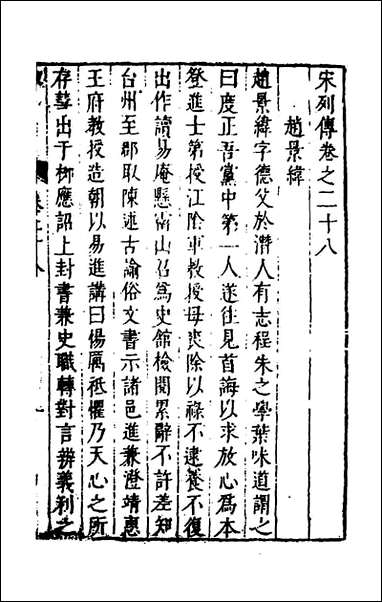 宋列傳卷之二十八
趙景緯
趙景緯字德父於潛人有志程朱之學葉味道謂之
曰度正吾黨中第一人遂往見首誨以求放心爲本
登進士第授江陰軍教授母喪除以祿不逮養不復
出作讀易庵懸霤山召爲史館檢閱累辭不許差知
台州至郡取陳述古諭俗文書示諸邑進兼澄靖惠
王府教授造朝以易進講曰惕厲祗懼乃天心之所
存彗出于栁應詔上封書兼史職轉對言辨義利之